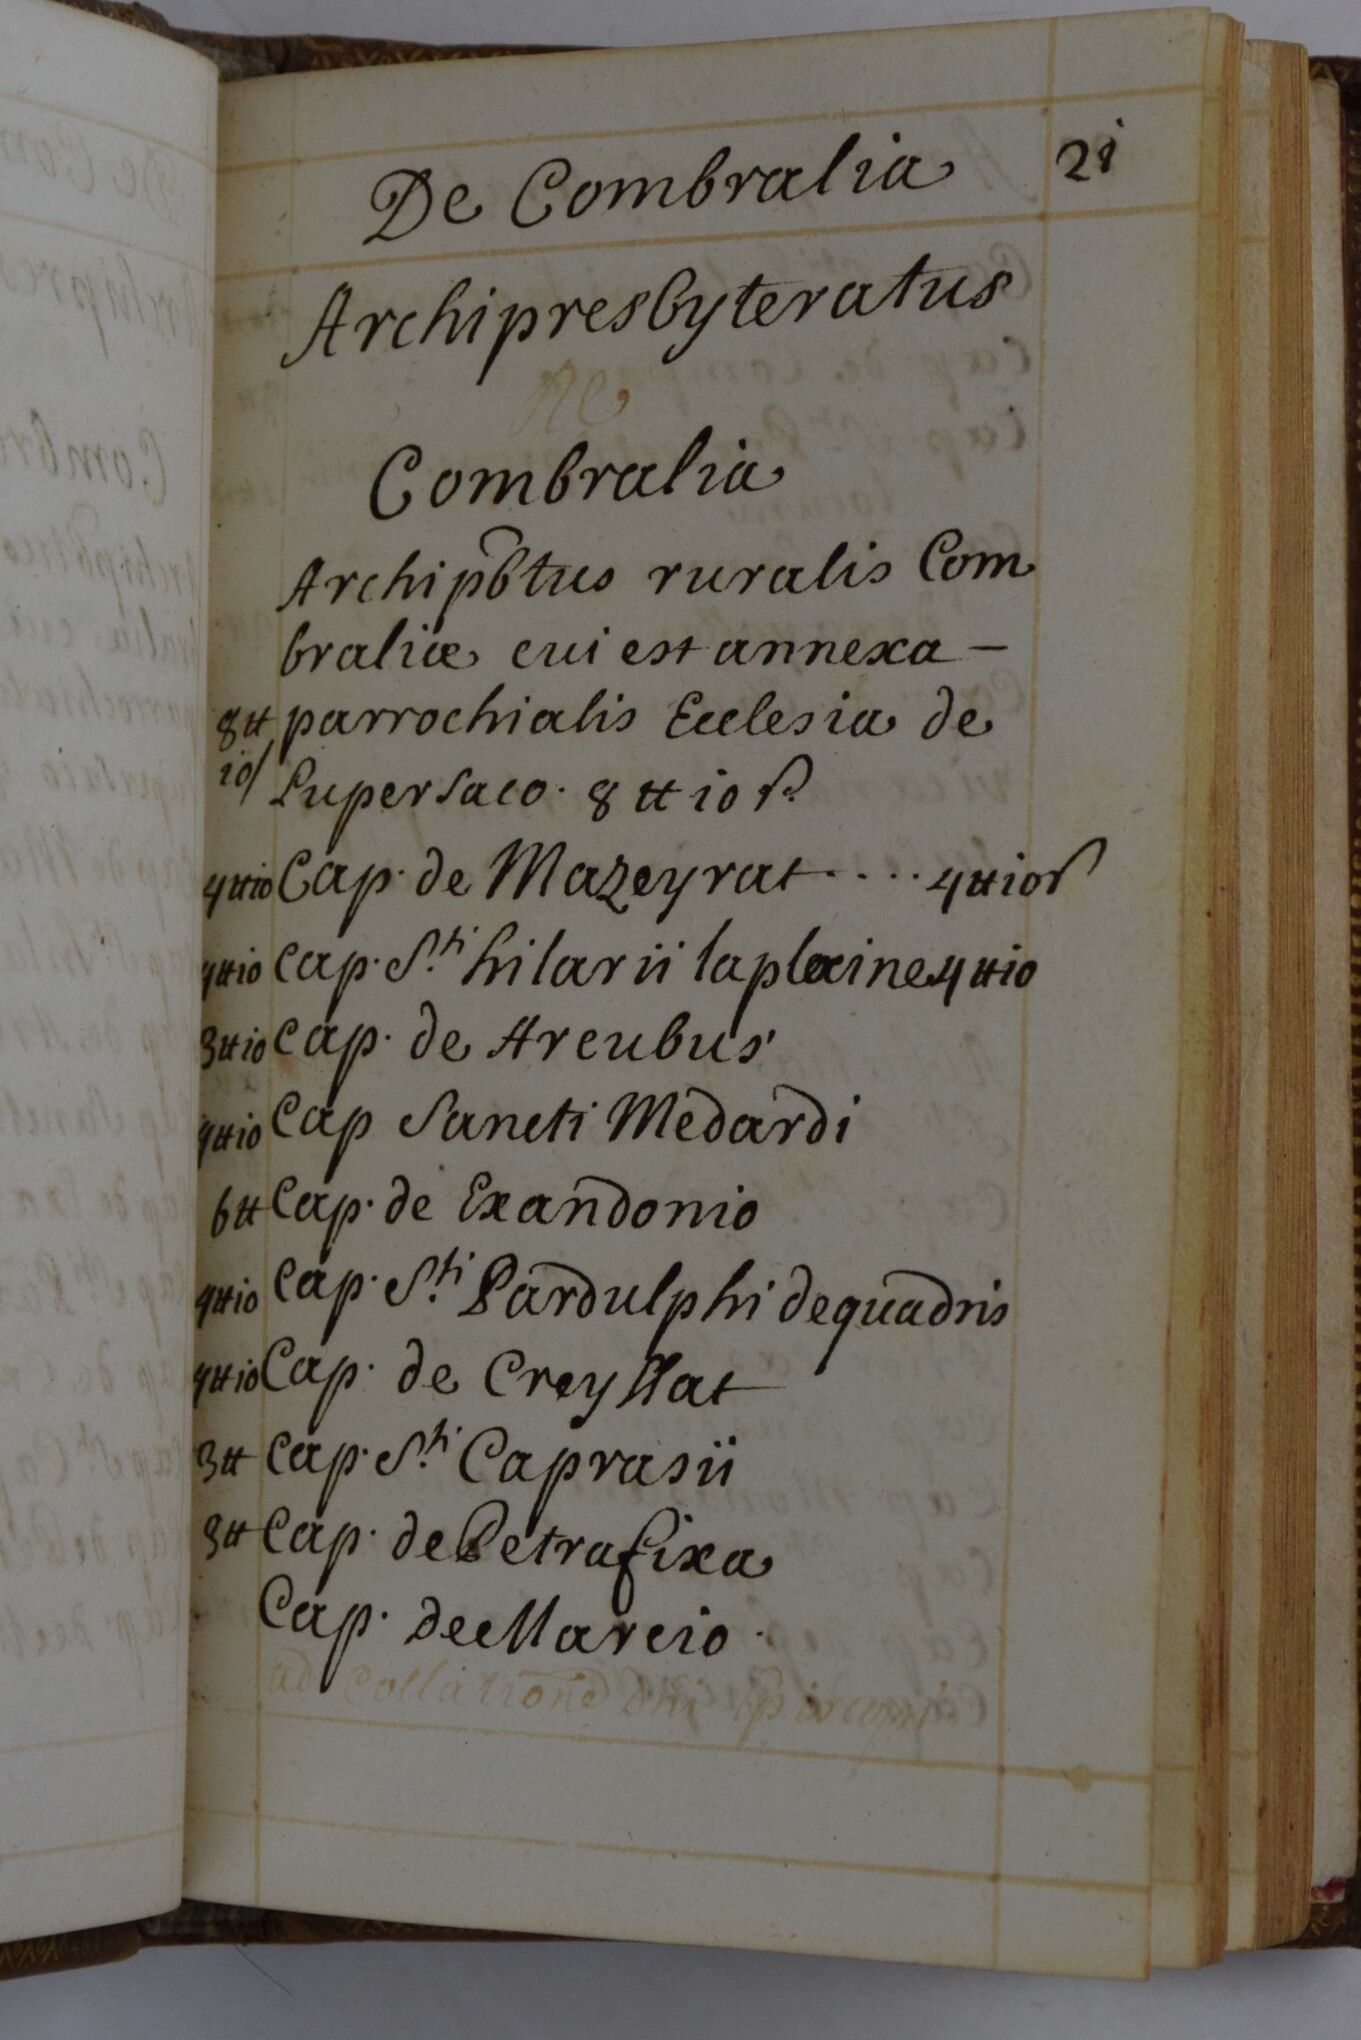 De Combralia 21
Archipresbyteratus
De
Combralia
Archip̄btus ruralis Com
braliæ cui est annexa –
8tt parrochialis Ecclesia de
10ſ Lupersaco. 8tt 10ſ.
4tt10 Cap. de Mazeyrat .... 4tt10ſ
4tt10 Cap. S.ti hilarii laplaine 4tt10
3tt10 Cap. de Arcubus
4tt10 Cap Sancti Medardi
6tt Cap. de Exandonio
4tt10 Cap. S.ti Pardulphi dequadris
4tt10 Cap. de Creyssat
3tt Cap. S.ti Caprasii
3tt Cap. de Petrafixa
Cap. de Marcio.
ad collationē Dni Episcopi